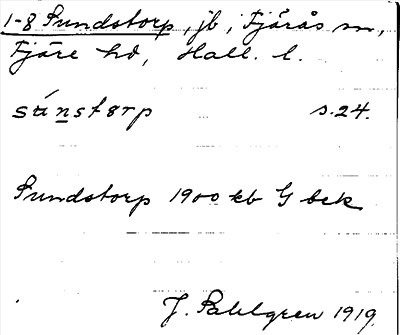 1-8 Sundstorp, jb, Fjärås sn,
Fjäre hd, Hall. l.
súnstorp s. 24.
Sundstorp 1900 kb G bek
J. Sahlgren 1919.